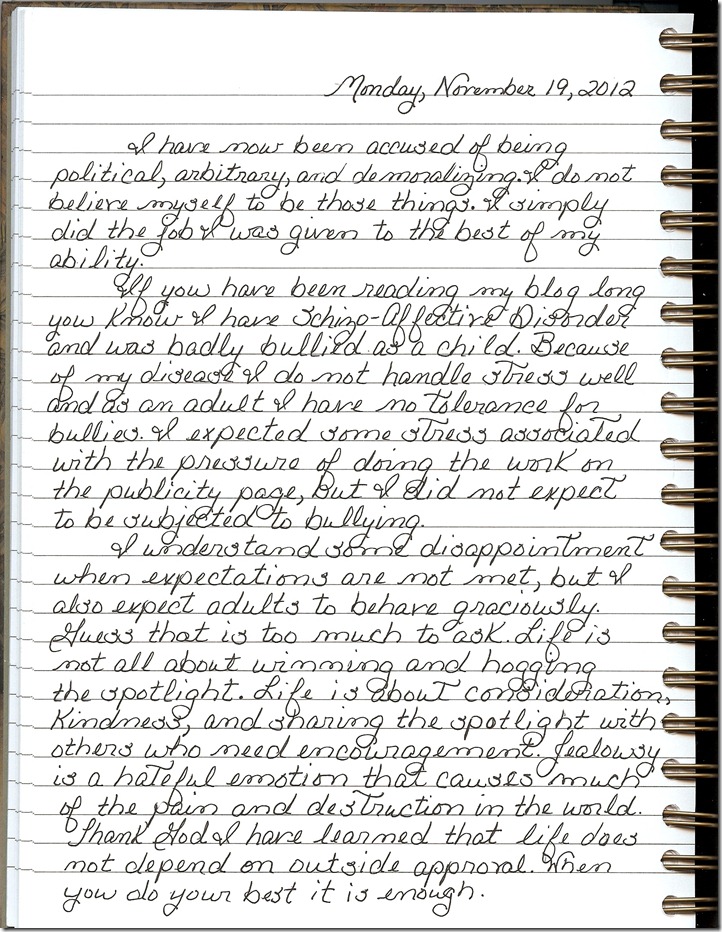 Monday, November 19, 2012
I have now been accused of being
political, arbitrary, and demoralizing. I do not
believe myself to be those things. I simply
did the job I was given to the best of my
ability.
If you have been reading my blog long
you know I have Schizo-Affective Disorder
and was badly bullied as a child. Because
of my disease I do not handle stress well
and as an adult I have no tolerance for
bullies. I expected some stress associated
with the pressure of doing the work on
the publicity page, but I did not expect
to be subjected to bullying.
I understand some disappointment
when expectations are not met, but I
also expect adults to behave graciously.
Guess that is too much to ask. Life is
not all about winning and hogging
the spotlight. Life is about consideration,
kindness, and sharing the spotlight with
others who need encouragement. Jealousy
is a hateful emotion that causes much
of the pain and destruction in the world.
Thank God I have learned that life does
not depend on outside approval. When
you do your best it is enough.